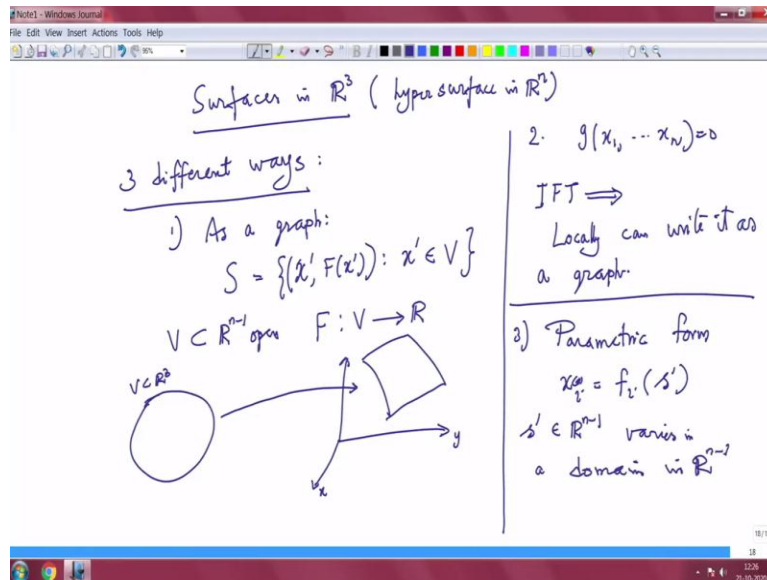 Note1 - Windows Journal
File Edit View Insert Actions Tools Help
96%
Surfaces in ℝ³ (hypersurface in ℝⁿ)
3 different ways:
1) As a graph:
S = {(x', F(x')) : x' ∈ V}
V ⊂ ℝⁿ⁻¹ open F : V → ℝ
V⊂ℝ³
y
x
2. g(x₁, ... x_N) = 0
IFT ⟹
Locally can write it as
a graph.
3) Parametric form
xᵢ = fᵢ(s')
s' ∈ ℝⁿ⁻¹ varies in
a domain in ℝⁿ⁻¹
18/1
18
12:26
21-10-2020